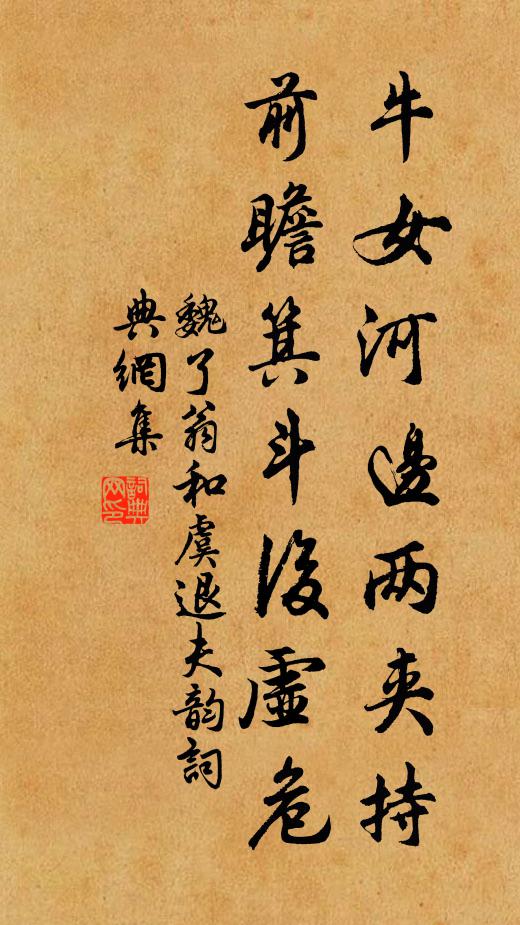 牛女河邊两夾持
前瞻箕斗後虛危
魏了翁和虞退夫韵詞
典網集
詞典
网印